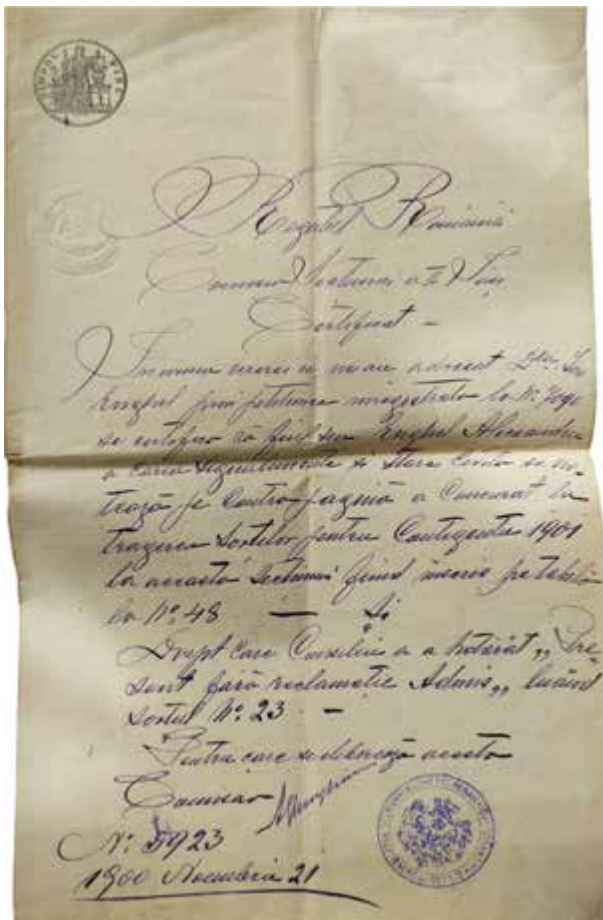 TIMBRU FIX
Regatul României
Comisia Secturei a II Iași
Certificat –
În urma cererei ce ne au adresat
Enghel prin petitiunea inregistrata la Nº
se certifica că fiul seu Enghel Alexandru
a caria Signalmente si Starea Civila se no-
teaza pe Contra pagină a Concurat la
tragerea Sortilor pentru Contigentu 1901
la aceasta Sectiuni fiind inscris pe tabelu
la Nº 48 — Si
Drept care Consiliu a hotărât „ Pre-
sent fară reclamatie Admis „ luând
Sortul Nº 23 –
Pentru care se libereaza acesta
Comisar
Nº 5923
1900 Noembrie 21